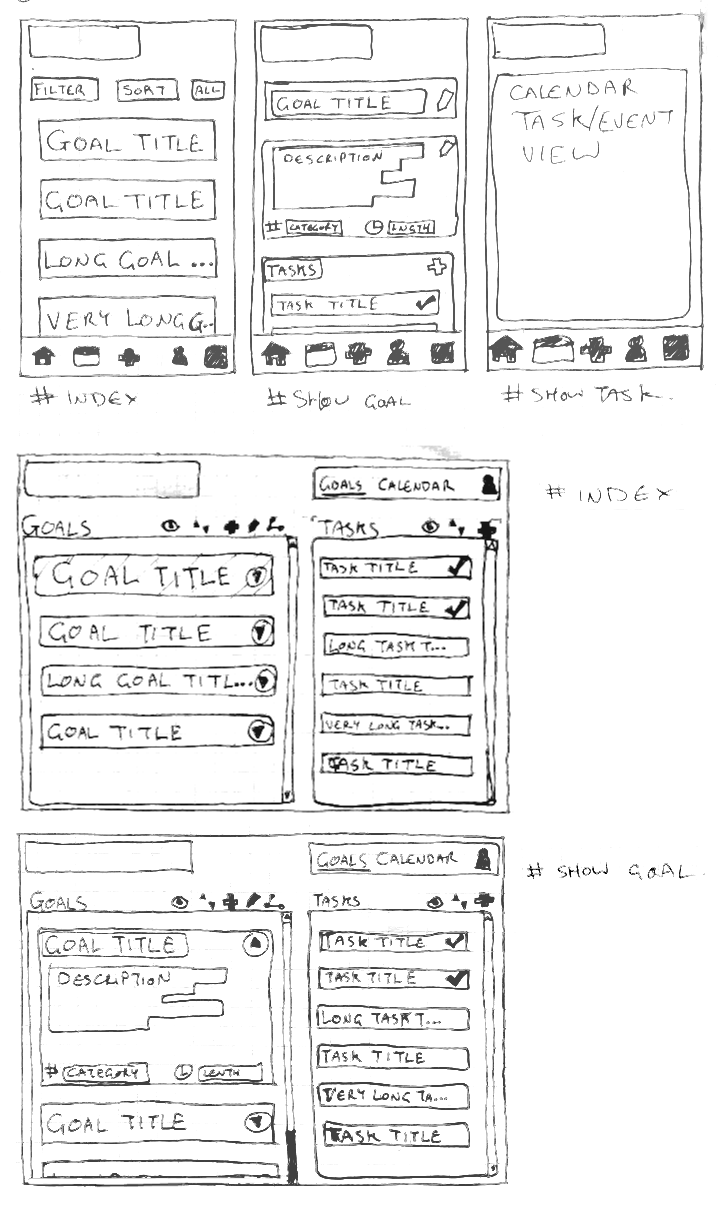 FILTER SORT ALL
GOAL TITLE
GOAL TITLE
LONG GOAL ...
VERY LONG G..
# INDEX
GOAL TITLE
DESCRIPTION
# CATEGORY LNGTH
TASKS
TASK TITLE
# SHOW GOAL
CALENDAR
TASK/EVENT
VIEW
# SHOW TASK.
GOALS CALENDAR
# INDEX
GOALS
GOAL TITLE
GOAL TITLE
LONG GOAL TITL...
GOAL TITLE
TASKS
TASK TITLE
TASK TITLE
LONG TASK T...
TASK TITLE
VERY LONG TASK..
TASK TITLE
GOALS CALENDAR
# SHOW GOAL
GOALS
GOAL TITLE
DESCRIPTION
# CATEGORY LENTH
GOAL TITLE
TASKS
TASK TITLE
TASK TITLE
LONG TASK T...
TASK TITLE
VERY LONG TA...
TASK TITLE